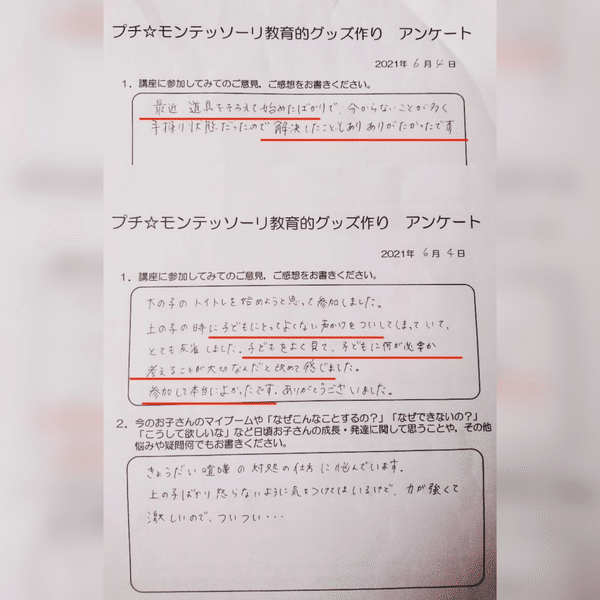 プチ☆モンテッソーリ教育的グッズ作り アンケート
2021年 6月 4日
1. 講座に参加してみてのご意見、ご感想をお書きください。
最近、道具をそろえて始めたばかりで、分からないことが多く
手探り状態だったので解決したこともありありがたかったです
プチ☆モンテッソーリ教育的グッズ作り アンケート
2021年 6月 4日
1. 講座に参加してみてのご意見、ご感想をお書きください。
下の子のトイトレを始めようと思って参加しました。
上の子の時に子どもにとってよくない声かけをついてしまっていて、
とても反省しました。子どもをよく見て、子どもに何が必要か
考えることが大切なんだと改めて感じました。
参加して本当によかったです。ありがとうございました。
2. 今のお子さんのマイブームや「なぜこんなことするの？」「なぜできないの？」
「こうして欲しいな」など日頃お子さんの成長・発達に関して思うことや、その他
悩みや疑問何でもお書きください。
きょうだい喧嘩の対処の仕方に悩んでいます。
上の子ばかり怒らないように気をつけてはいるけど、力が強くて
激しいので、ついつい・・・